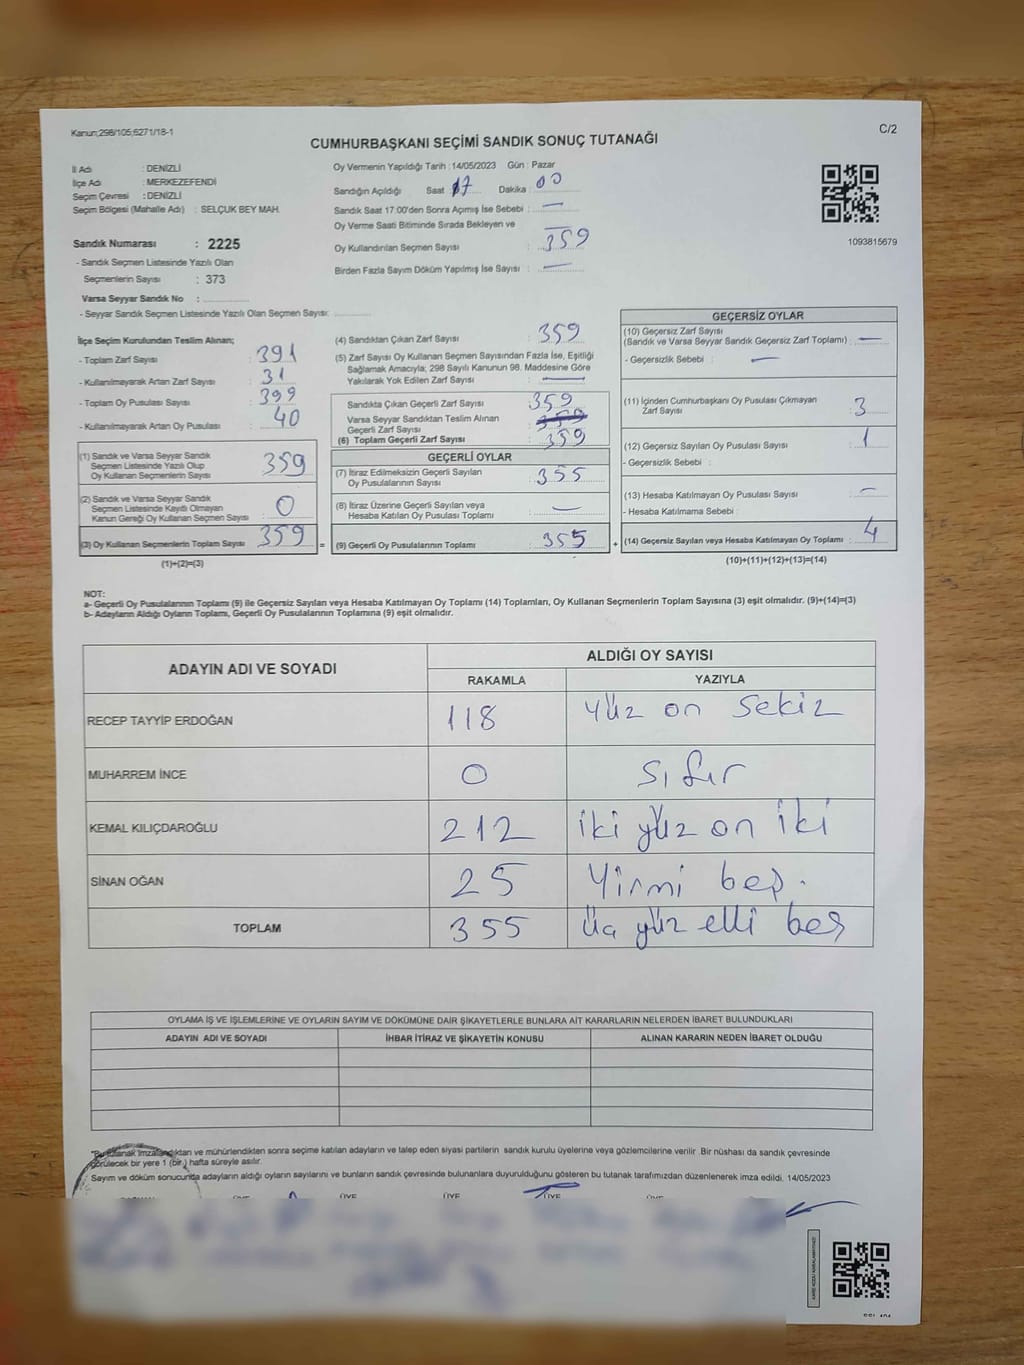 Kanun;298/105;6271/18-1
C/2
CUMHURBAŞKANI SEÇİMİ SANDIK SONUÇ TUTANAĞI
İl Adı : DENİZLİ
İlçe Adı : MERKEZEFENDİ
Seçim Çevresi : DENİZLİ
Seçim Bölgesi (Mahalle Adı) : SELÇUK BEY MAH.
Sandık Numarası : 2225
- Sandık Seçmen Listesinde Yazılı Olan
Seçmenlerin Sayısı : 373
Varsa Seyyar Sandık No :
- Seyyar Sandık Seçmen Listesinde Yazılı Olan Seçmen Sayısı:
Oy Vermenin Yapıldığı Tarih : 14/05/2023 Gün : Pazar
Sandığın Açıldığı Saat 17 Dakika : 00
Sandık Saat 17.00'den Sonra Açımış İse Sebebi : —
Oy Verme Saati Bitiminde Sırada Bekleyen ve
Oy Kullandırılan Seçmen Sayısı : 359
Birden Fazla Sayım Döküm Yapılmış İse Sayısı : —
1093815679
İlçe Seçim Kurulundan Teslim Alınan;
- Toplam Zarf Sayısı : 391
- Kullanılmayarak Artan Zarf Sayısı : 31
- Toplam Oy Pusulası Sayısı : 399
- Kullanılmayarak Artan Oy Pusulası : 40
(1) Sandık ve Varsa Seyyar Sandık
Seçmen Listesinde Yazılı Olup
Oy Kullanan Seçmenlerin Sayısı : 359
(2) Sandık ve Varsa Seyyar Sandık
Seçmen Listesinde Kayıtlı Olmayan
Kanun Gereği Oy Kullanan Seçmen Sayısı : 0
(3) Oy Kullanan Seçmenlerin Toplam Sayısı : 359 =
(1)+(2)=(3)
(4) Sandıktan Çıkan Zarf Sayısı : 359
(5) Zarf Sayısı Oy Kullanan Seçmen Sayısından Fazla İse, Eşitliği
Sağlamak Amacıyla; 298 Sayılı Kanunun 98. Maddesine Göre
Yakılarak Yok Edilen Zarf Sayısı : —
Sandıkta Çıkan Geçerli Zarf Sayısı : 359
Varsa Seyyar Sandıktan Teslim Alınan
Geçerli Zarf Sayısı : 359
(6) Toplam Geçerli Zarf Sayısı : 359
GEÇERLİ OYLAR
(7) İtiraz Edilmeksizin Geçerli Sayılan
Oy Pusulalarının Sayısı : 355
(8) İtiraz Üzerine Geçerli Sayılan veya
Hesaba Katılan Oy Pusulası Toplamı : —
(9) Geçerli Oy Pusulalarının Toplamı : 355 +
GEÇERSİZ OYLAR
(10) Geçersiz Zarf Sayısı
(Sandık ve Varsa Seyyar Sandık Geçersiz Zarf Toplamı) : —
- Geçersizlik Sebebi : —
(11) İçinden Cumhurbaşkanı Oy Pusulası Çıkmayan
Zarf Sayısı : 3
(12) Geçersiz Sayılan Oy Pusulası Sayısı : 1
- Geçersizlik Sebebi :
(13) Hesaba Katılmayan Oy Pusulası Sayısı : —
- Hesaba Katılmama Sebebi :
(14) Geçersiz Sayılan veya Hesaba Katılmayan Oy Toplamı : 4
(10)+(11)+(12)+(13)=(14)
NOT:
a- Geçerli Oy Pusulalarının Toplamı (9) ile Geçersiz Sayılan veya Hesaba Katılmayan Oy Toplamı (14) Toplamları, Oy Kullanan Seçmenlerin Toplam Sayısına (3) eşit olmalıdır. (9)+(14)=(3)
b- Adayların Aldığı Oyların Toplamı, Geçerli Oy Pusulalarının Toplamına (9) eşit olmalıdır.
ADAYIN ADI VE SOYADI
ALDIĞI OY SAYISI
RAKAMLA YAZIYLA
RECEP TAYYİP ERDOĞAN 118 yüz on sekiz
MUHARREM İNCE 0 sıfır
KEMAL KILIÇDAROĞLU 212 iki yüz on iki
SİNAN OĞAN 25 Yirmi beş.
TOPLAM 355 üç yüz elli beş
OYLAMA İŞ VE İŞLEMLERİNE VE OYLARIN SAYIM VE DÖKÜMÜNE DAİR ŞİKAYETLERLE BUNLARA AİT KARARLARIN NELERDEN İBARET BULUNDUKLARI
ADAYIN ADI VE SOYADI İHBAR İTİRAZ VE ŞİKAYETİN KONUSU ALINAN KARARIN NEDEN İBARET OLDUĞU
*Bu tutanak imzalandıktan ve mühürlendikten sonra seçime katılan adayların ve talep eden siyasi partilerin sandık kurulu üyelerine veya gözlemcilerine verilir. Bir nüshası da sandık çevresinde
görülecek bir yere 1 (bir) hafta süreyle asılır.
Sayım ve döküm sonucunda adayların aldığı oyların sayılarını ve bunların sandık çevresinde bulunanlara duyurulduğunu gösteren bu tutanak tarafımızdan düzenlenerek imza edildi. 14/05/2023
ÜYE ÜYE ÜYE ÜYE ÜYE